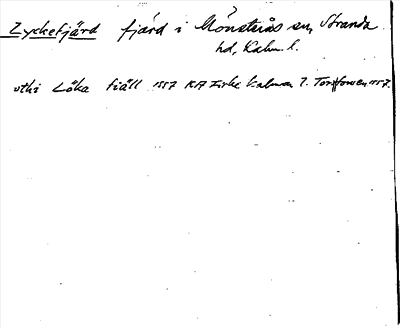 Lyckefjärd fjärd i Mönsterås sn, Stranda
hd, Kalm. l.
uthi Löka fiäll 1557 KA Kalmar 7. 1557.